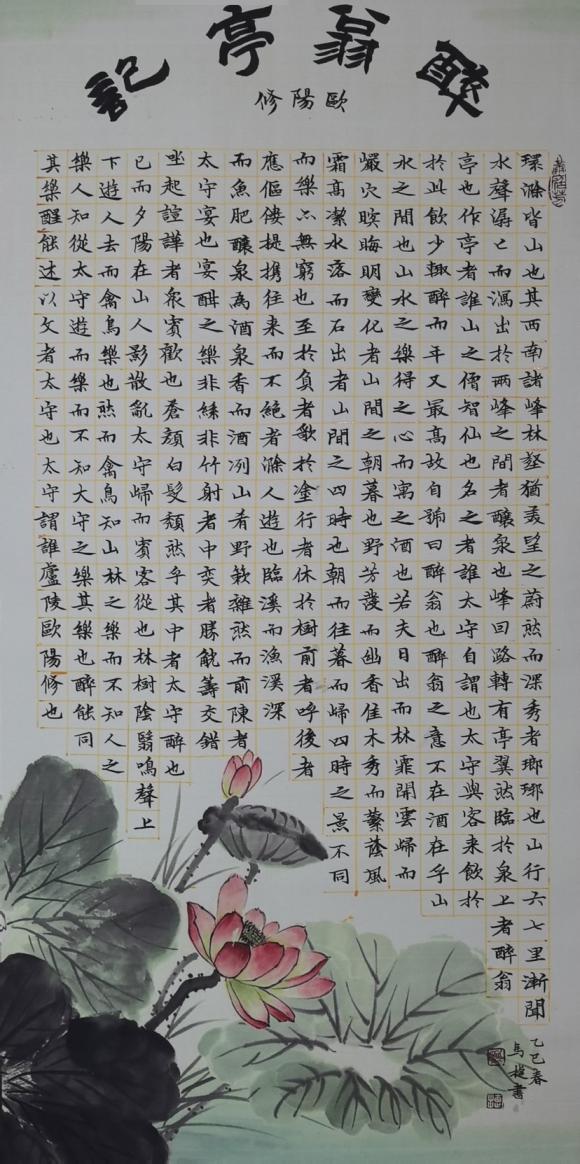 醉翁亭記
歐陽修
環滁皆山也其西南諸峰林壑猶美望之蔚然而深秀者瑯琊也山行六七里漸聞
水聲潺〻而瀉出於兩峰之間者釀泉也峰回路轉有亭翼然臨於泉上者醉翁
亭也作亭者誰山之僧智仙也名之者誰太守自謂也太守與客來飲於
於此飲少輒醉而年又最高故自號曰醉翁也醉翁之意不在酒在乎山
水之間也山水之樂得之心而寓之酒也若夫日出而林霏開雲歸而
巖穴暝晦明變化者山間之朝暮也野芳發而幽香佳木秀而蘩蔭風
霜高潔水落而石出者山間之四時也朝而往暮而歸四時之景不同
而樂亦無窮也至於負者歌於塗行者休於樹前者呼後者
應傴僂提攜往來而不絕者滁人遊也臨溪而漁溪深
而魚肥釀泉為酒泉香而酒冽山肴野蔌雜然而前陳者
太守宴也宴酣之樂非絲非竹射者中奕者勝觥籌交錯
坐起諠譁者眾賓歡也蒼顏白髮頹然乎其中者太守醉也
已而夕陽在山人影散亂太守歸而賓客從也林樹陰翳鳴聲上
下遊人去而禽鳥樂也然而禽鳥知山林之樂而不知人之
樂人知從太守遊而樂而不知大守之樂其樂也醉能同
其樂醒能述以文者太守也太守謂誰廬陵歐陽修也
乙巳春
馬提書